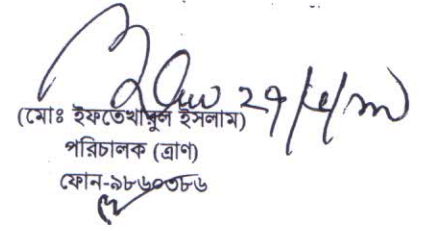 (মোঃ ইফতেখারুল ইসলাম)
পরিচালক (ত্রাণ)
ফোন-৯৮৬০৩৮৬